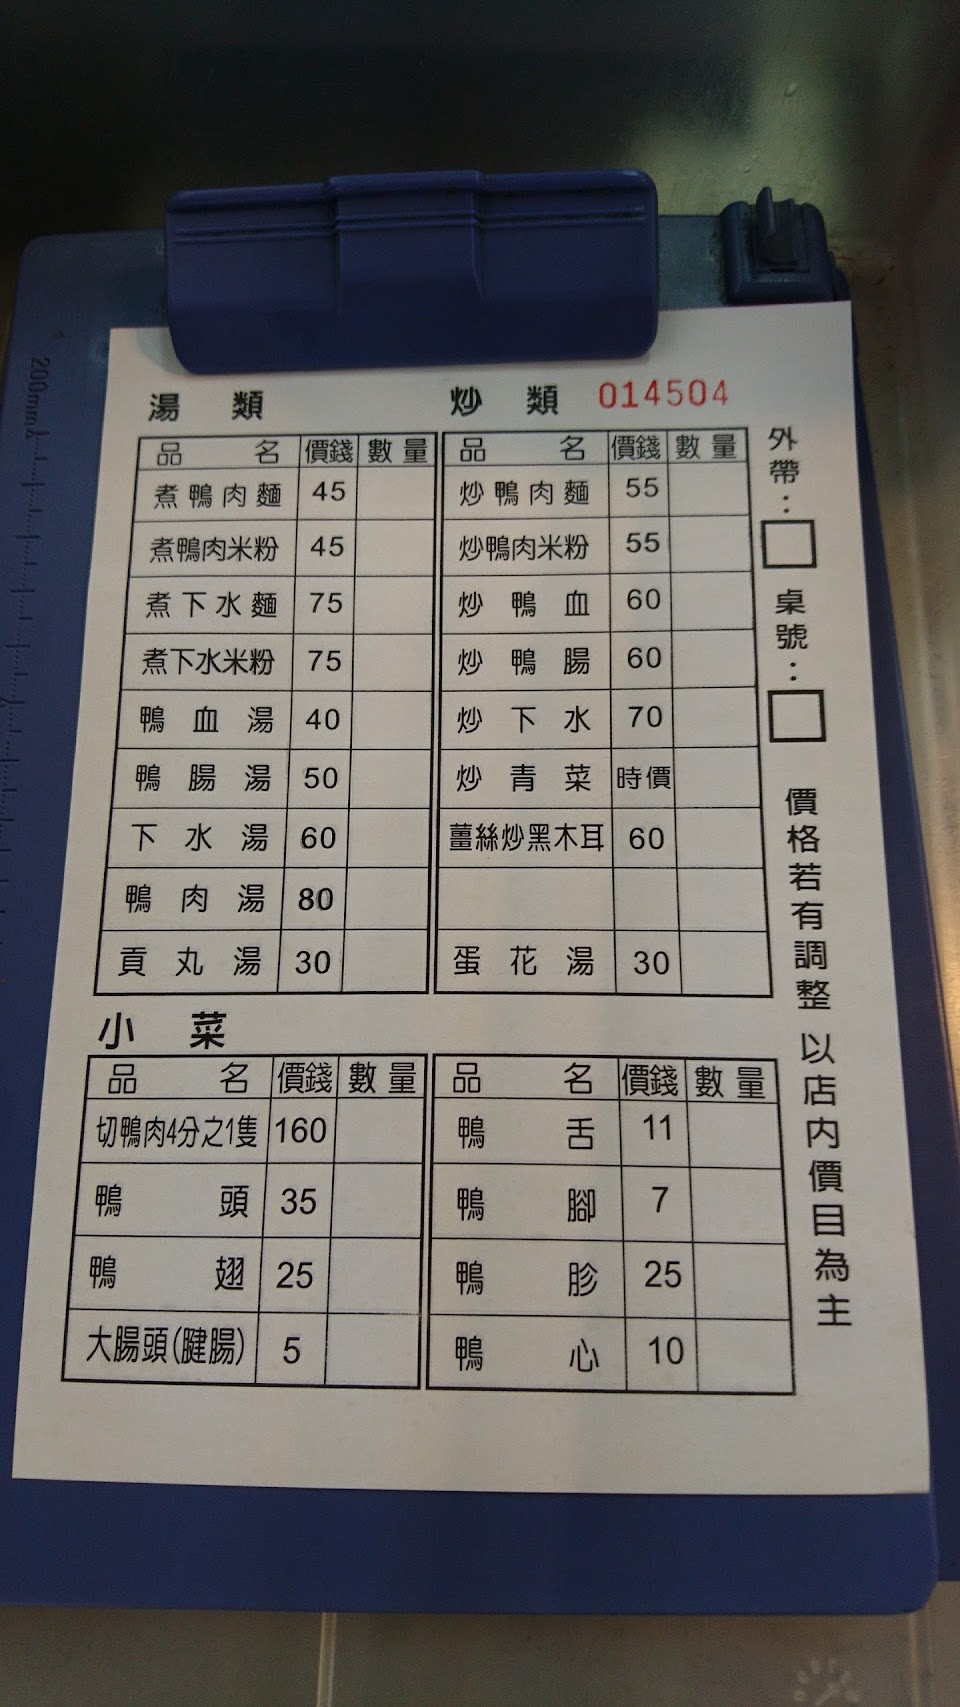 200mm
湯類
品名 價錢 數量
煮鴨肉麵 45
煮鴨肉米粉 45
煮下水麵 75
煮下水米粉 75
鴨血湯 40
鴨腸湯 50
下水湯 60
鴨肉湯 80
貢丸湯 30
炒類 014504
品名 價錢 數量
炒鴨肉麵 55
炒鴨肉米粉 55
炒鴨血 60
炒鴨腸 60
炒下水 70
炒青菜 時價
薑絲炒黑木耳 60
蛋花湯 30
小菜
品名 價錢 數量
切鴨肉4分之1隻 160
鴨頭 35
鴨翅 25
大腸頭(腱腸) 5
品名 價錢 數量
鴨舌 11
鴨腳 7
鴨胗 25
鴨心 10
外帶：
桌號：
價格若有調整 以店內價目為主